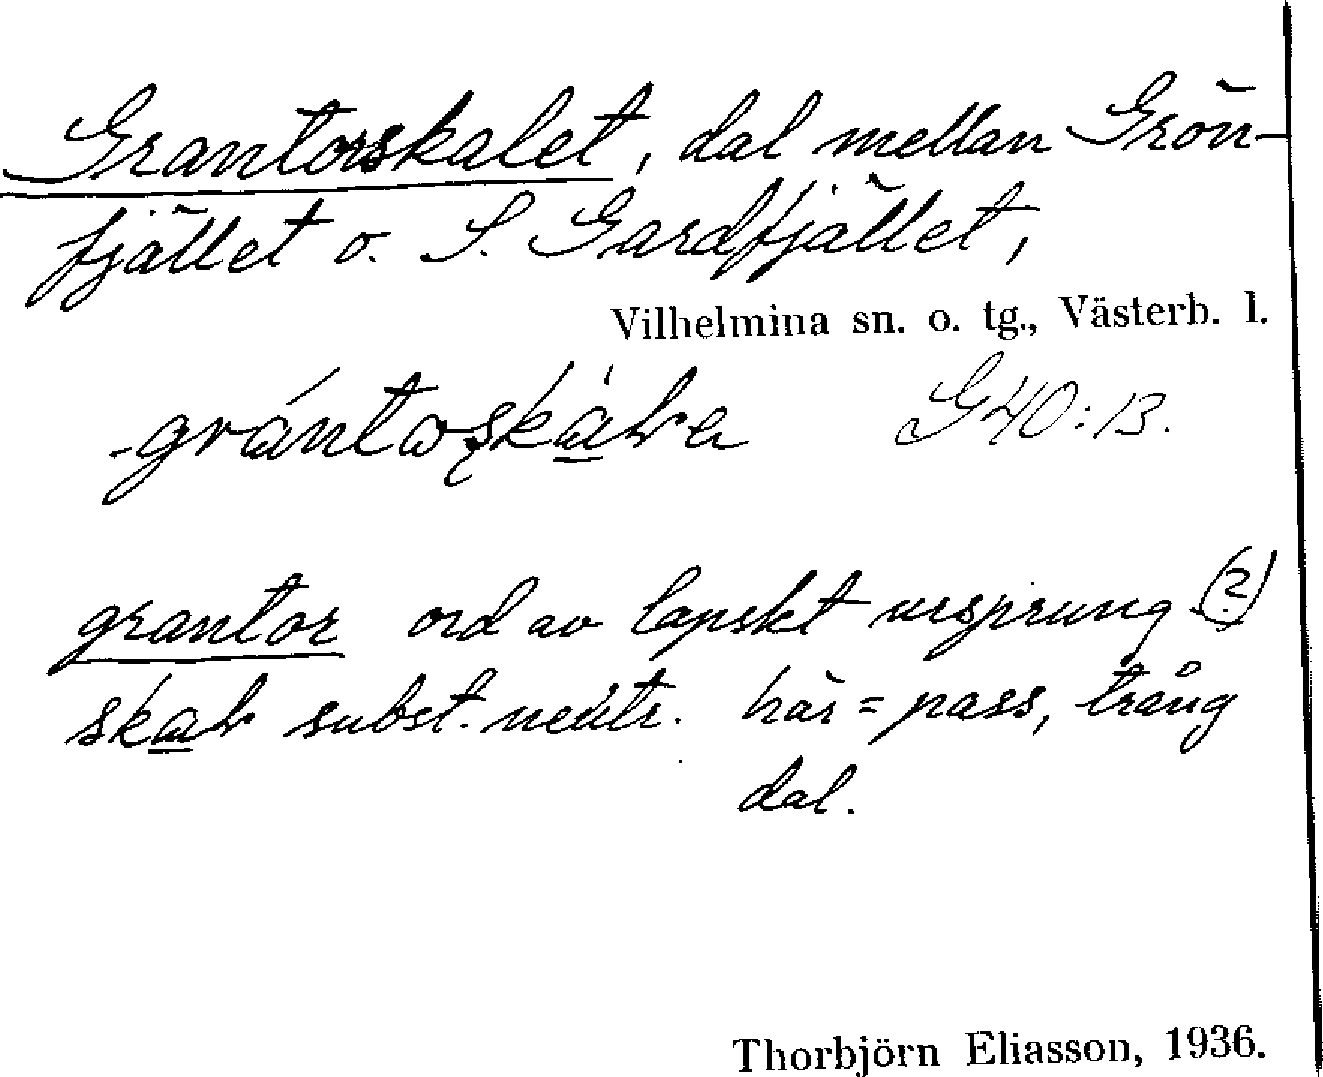 Grantorskalet, dal mellan Grön-
fjället o. S. Gardfjället,
Vilhelmina sn. o. tg., Västerb. l.
G40:13.
grantor ord av lapskt ursprung (?)
subst. neutr. här = pass, trång
dal.
Thorbjörn Eliasson, 1936.